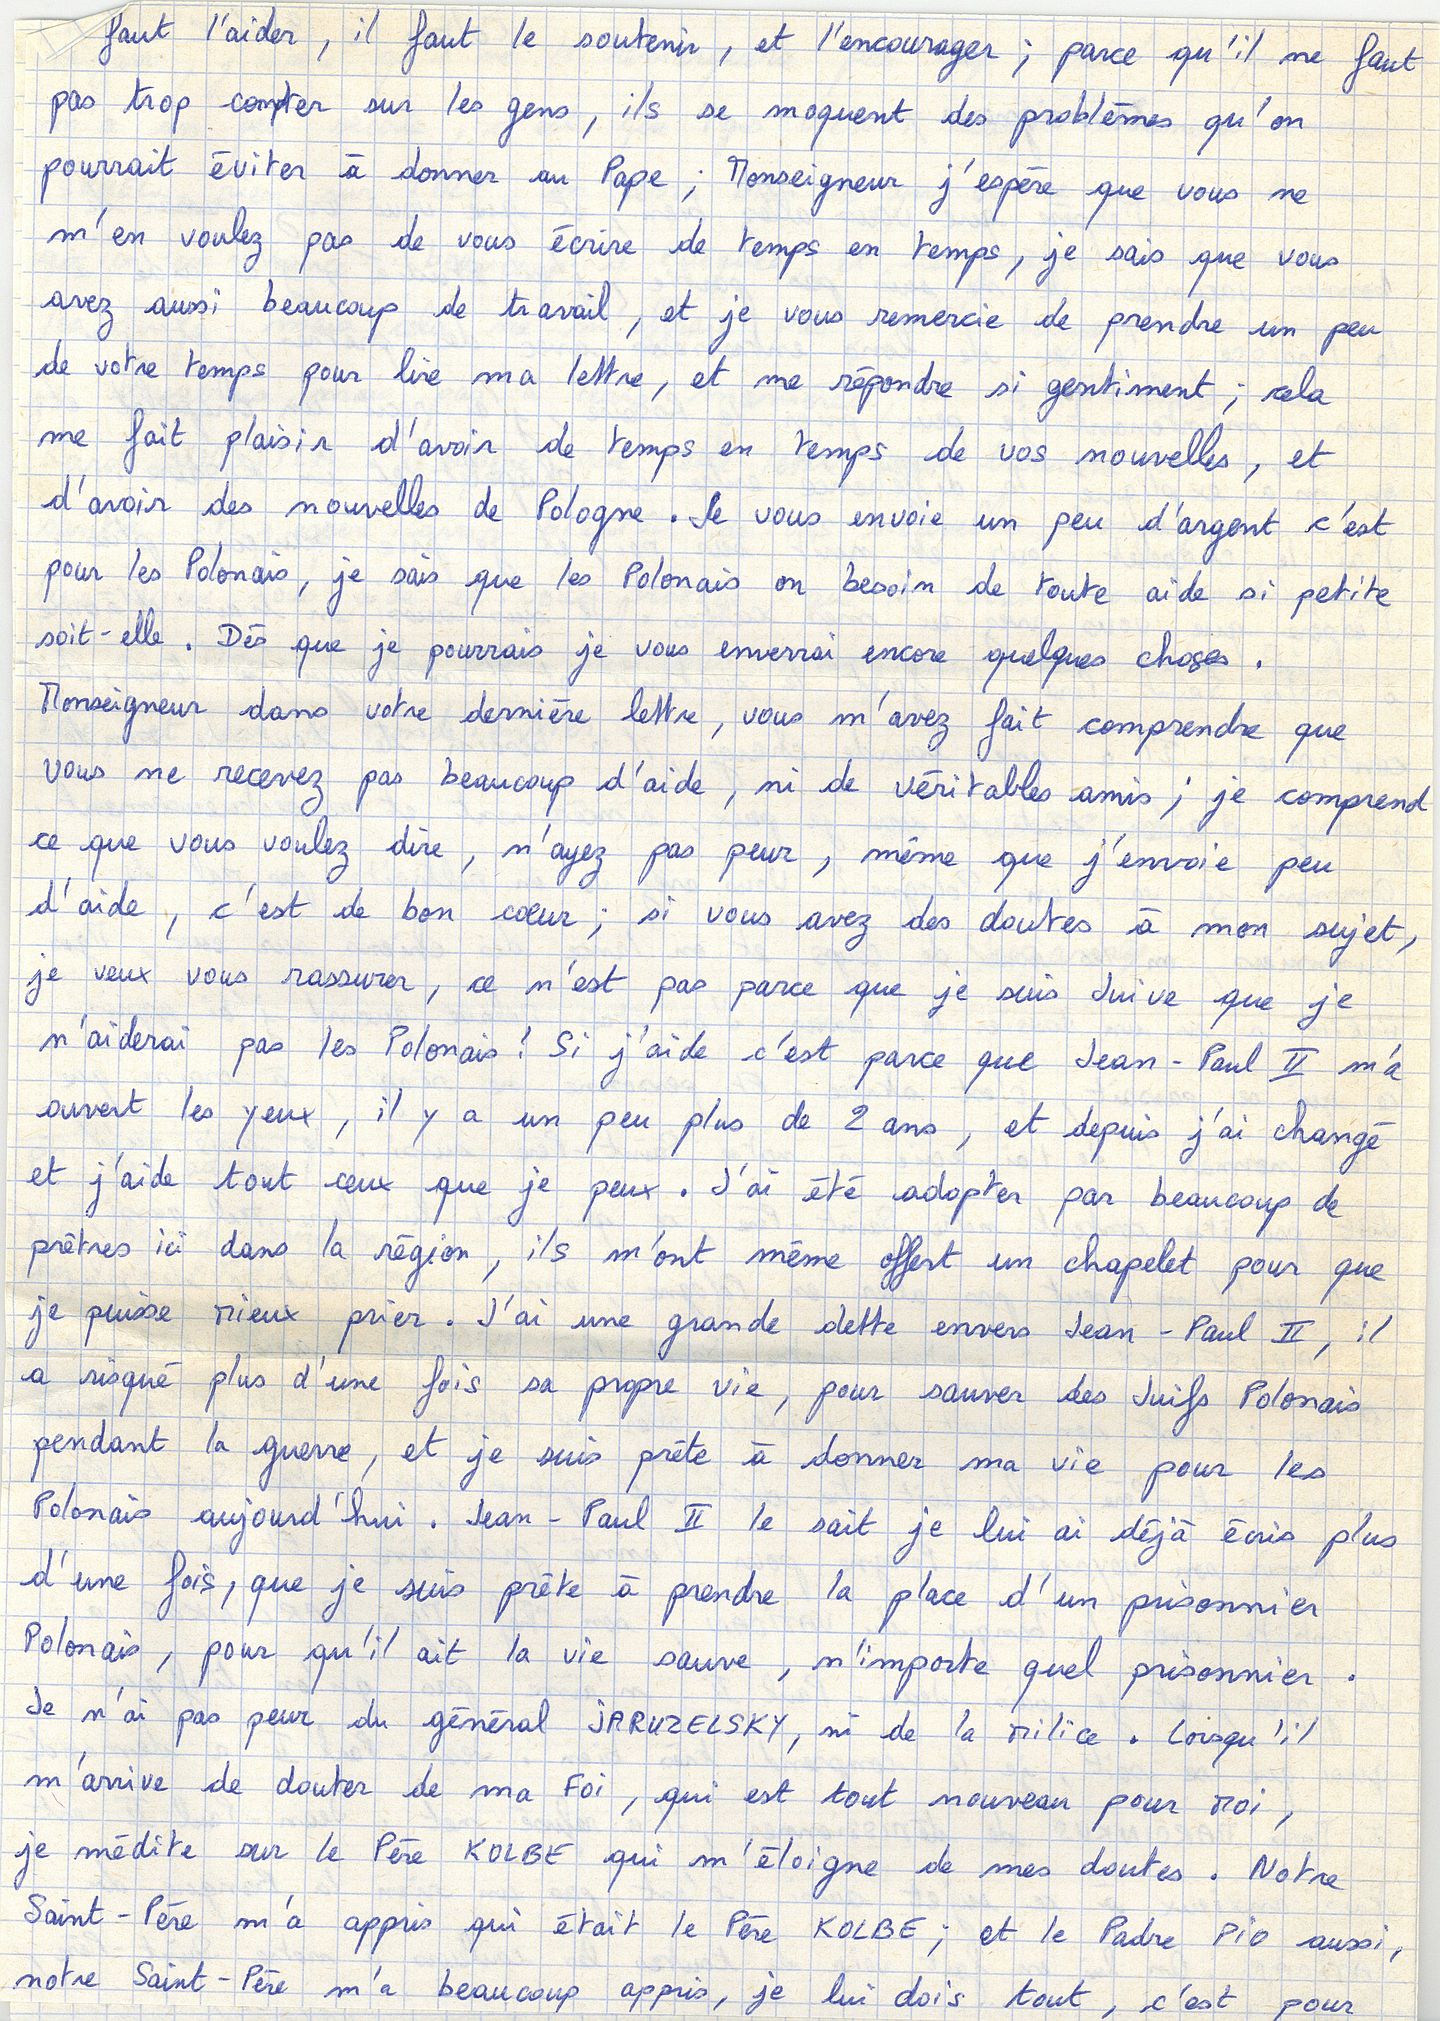 faut l'aider, il faut le soutenir, et l'encourager ; parce qu'il ne faut
pas trop compter sur les gens, ils se moquent des problèmes qu'on
pourrait éviter à donner au Pape ; Monseigneur j'espère que vous ne
m'en voulez pas de vous écrire de temps en temps, je sais que vous
avez aussi beaucoup de travail, et je vous remercie de prendre un peu
de votre temps pour lire ma lettre, et me répondre si gentiment ; cela
me fait plaisir d'avoir de temps en temps de vos nouvelles, et
d'avoir des nouvelles de Pologne. Je vous envoie un peu d'argent c'est
pour les Polonais, je sais que les Polonais on besoin de toute aide si petite
soit-elle. Dès que je pourrais je vous enverrai encore quelques choses.
Monseigneur dans votre dernière lettre, vous m'avez fait comprendre que
vous ne recevez pas beaucoup d'aide, ni de véritables amis ; je comprend
ce que vous voulez dire, n'ayez pas peur, même que j'envoie peu
d'aide, c'est de bon cœur ; si vous avez des doutes à mon sujet,
je veux vous rassurer, ce n'est pas parce que je suis Juive que je
n'aiderai pas les Polonais ! Si j'aide c'est parce que Jean-Paul II m'a
ouvert les yeux, il y a un peu plus de 2 ans, et depuis j'ai changé
et j'aide tout ceux que je peux. J'ai été adopter par beaucoup de
prêtres ici dans la région, ils m'ont même offert un chapelet pour que
je puisse mieux prier. J'ai une grande dette envers Jean-Paul II, il
a risqué plus d'une fois sa propre vie, pour sauver des Juifs Polonais
pendant la guerre, et je suis prête à donner ma vie pour les
Polonais aujourd'hui. Jean-Paul II le sait je lui ai déjà écris plus
d'une fois, que je suis prête à prendre la place d'un prisonnier
Polonais, pour qu'il ait la vie sauve, n'importe quel prisonnier.
Je n'ai pas peur du général JARUZELSKY, ni de la milice. Lorsqu'il
m'arrive de douter de ma Foi, qui est tout nouveau pour moi,
je médite sur le Père KOLBE qui m'éloigne de mes doutes. Notre
Saint-Père m'a appris qui était le Père KOLBE ; et le Padre Pio aussi,
notre Saint-Père m'a beaucoup appris, je lui dois tout, c'est pour